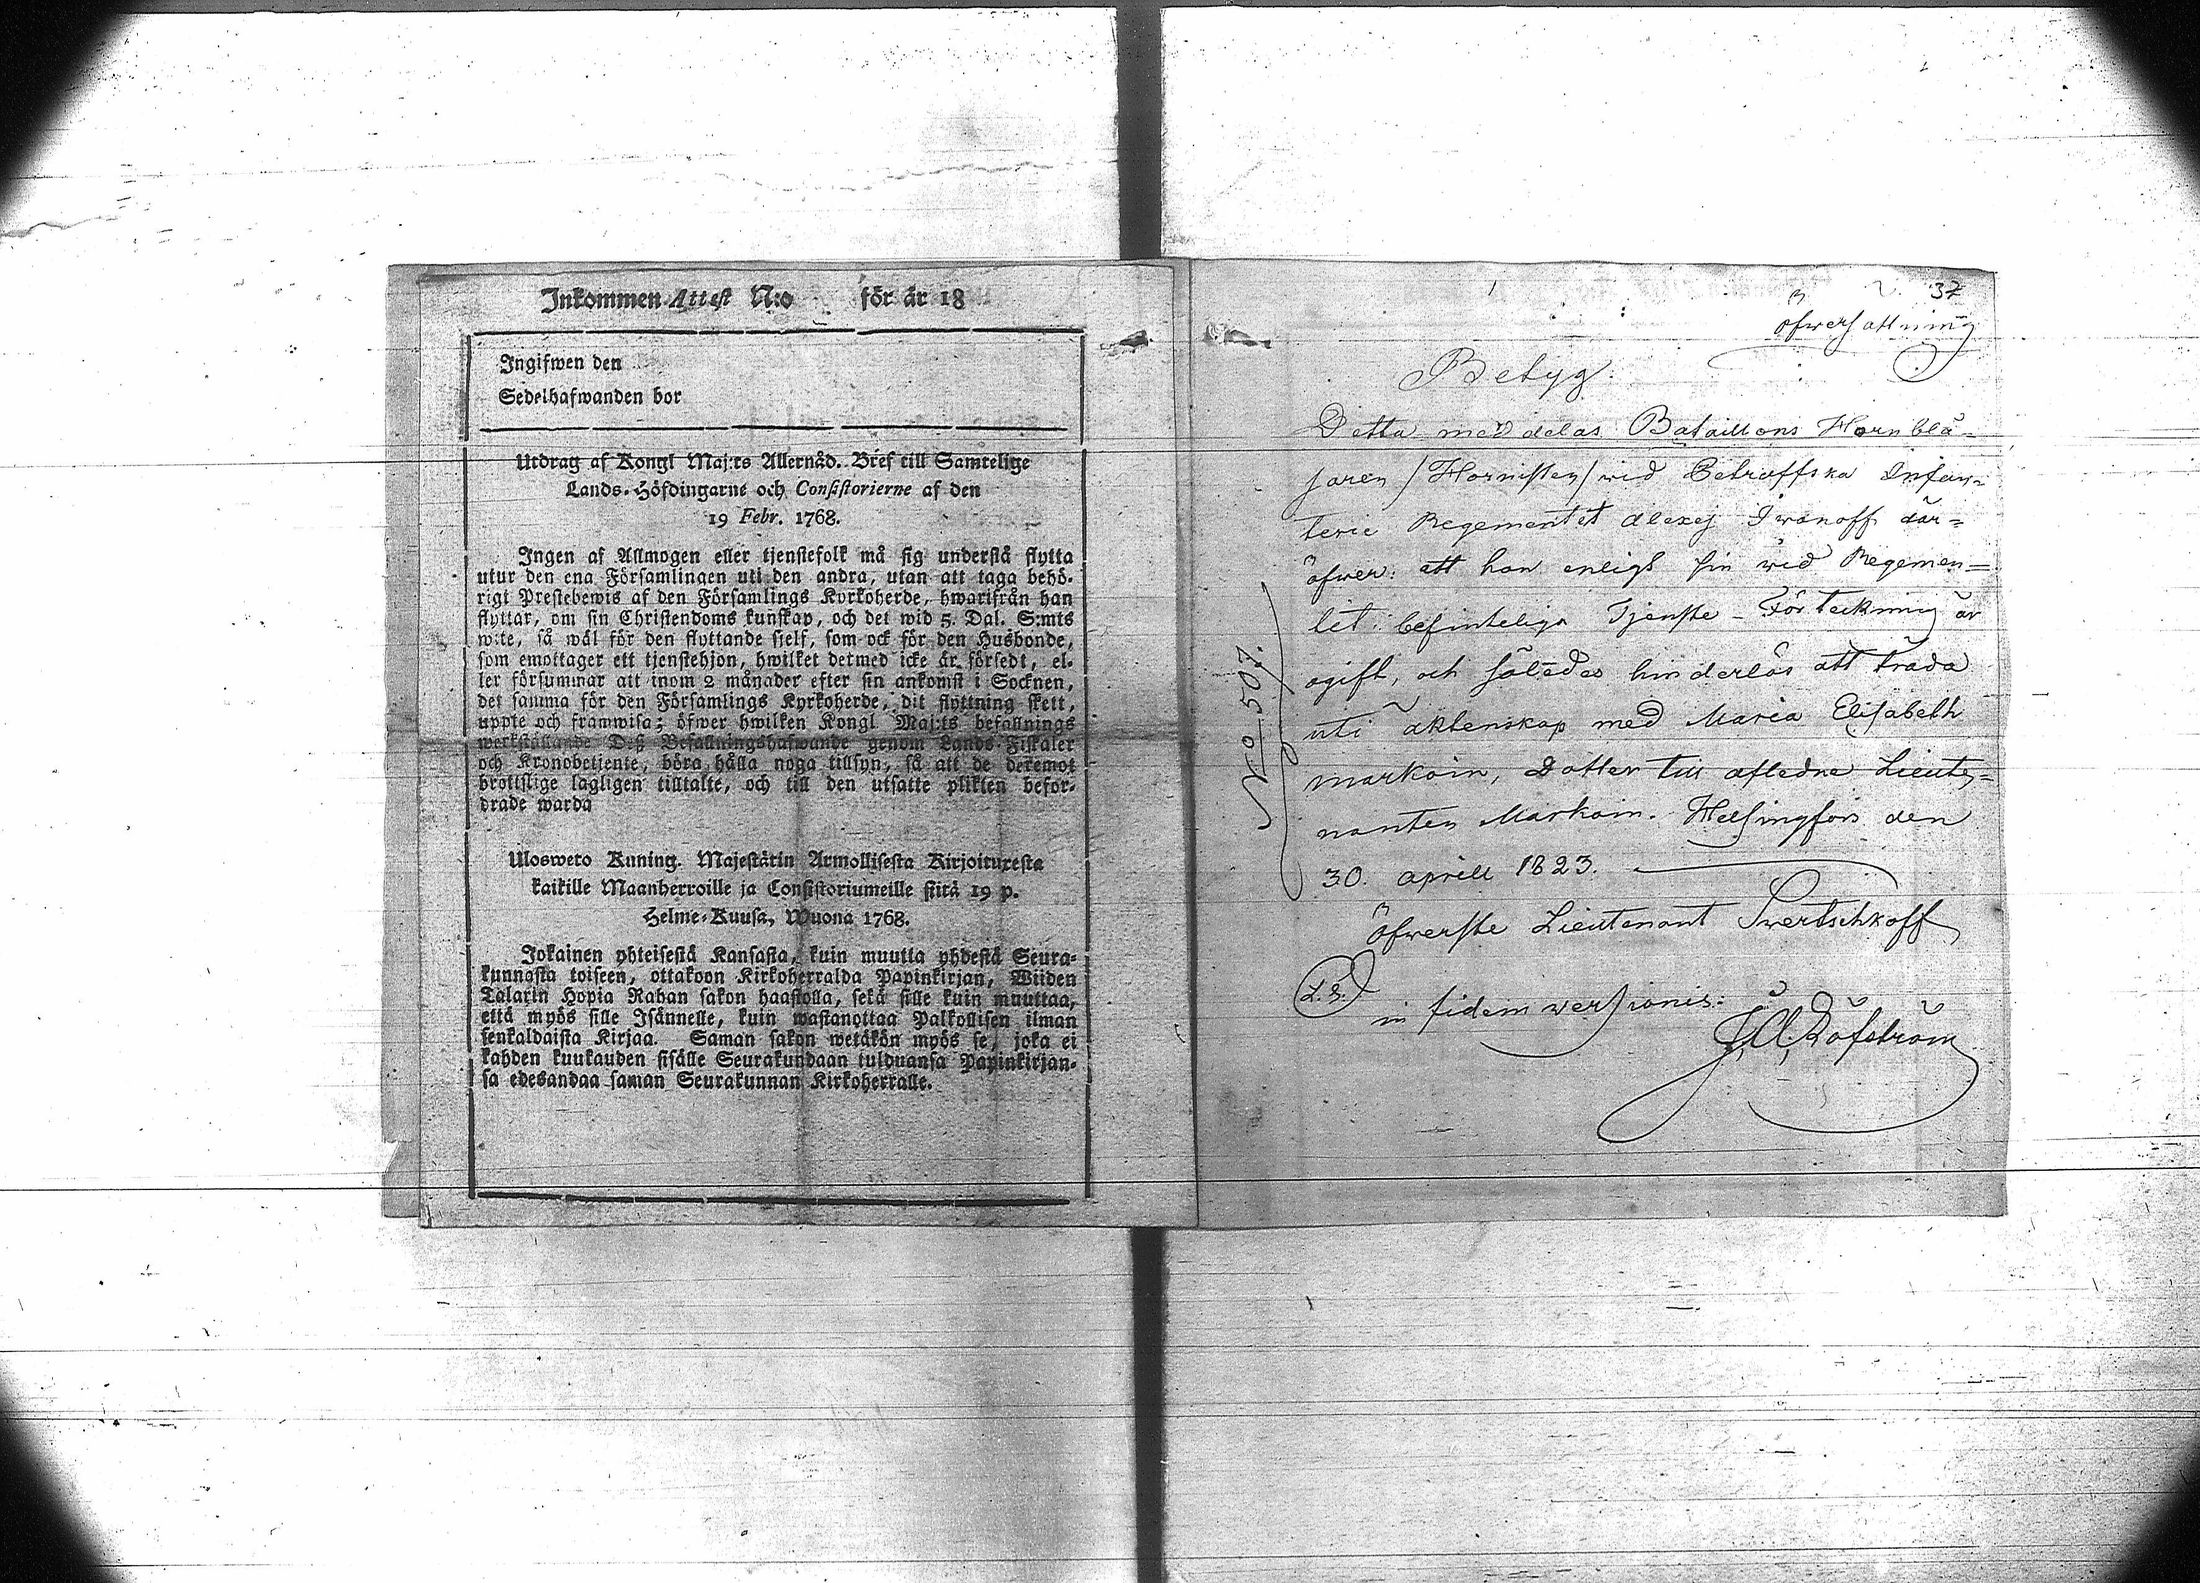 Inkommen Attest N:o för år 18
Ingifwen den
Sedelhafwanden bor
Utdrag af Kongl Maj:ts Allernåd. Bref till Samtelige
Lands-Höfdingarne och Consistorierne af den
19 Febr. 1768.
Ingen af Allmogen eller tjenstefolk må sig understå flytta
utur den ena Församlingen uti den andra, utan att taga behö-
rigt Prestebewis af den Församlings Kyrkoherde, hwarifrån han
flyttar, om sin Christendoms kunskap, och det wid 5. Dal. S:mts
wite, så wäl för den flyttande sielf, som ock för den Husbonde,
som emottager ett tjenstehjon, hwilket dermed icke är försedt, el-
ler försummar att inom 2 månader efter sin ankomst i Socknen,
det samma för den Församlings Kyrkoherde, dit flyttning skett,
uppte och framwisa; öfwer hwilken Kongl Maj:ts befallnings
werkställande Deß Befallningshafwande genom Lands-Fiskaler
och Kronobetiente, böra hålla noga tillsyn, så att de deremot
brottslige lagligen tilltalte, och till den utsatte plikten befor-
drade warda
Ulosweto Kuning. Majestätin Armollisesta Kirjoituxesta
kaikille Maanherroille ja Consistoriumeille siitä 19 p.
Helme-Kuusa, Wuona 1768.
Jokainen yhteisestä Kansasta, kuin muutta yhdestä Seura-
kunnasta toiseen, ottakoon Kirkoherralda Papinkirjan, Wiiden
Talarin Hopia Rahan sakon haastolla, sekä sille kuin muuttaa,
että myös sille Isännelle, kuin wastanottaa Palkollisen ilman
senkaldaista Kirjaa. Saman sakon wetäkön myös se, joka ei
kahden kuukauden sisälle Seurakundaan tulduansa Papinkirjan-
sa edesandaa saman Seurakunnan Kirkoherralle.
37
öfwersättning
Betyg.
Detta meddelas Bataillons Hornblå-
saren /Hornisten/ wid Petroffska Infan-
terie Regementet Alexej Iwanoff där-
öfwer: att han enligt sin wid Regemen-
tet befinteliga Tjenste-Förteckning är
ogift, och således hinderlös att träda
uti äktenskap med Maria Elisabeth
Markoin, Dotter till afledne Lieute-
nanten Markoin. Helsingfors den
30. aprill 1823.
Öfwerste Lieutenant Swertschkoff
L.S.
in fidem versionis:
J. A. Döfström
No 507.